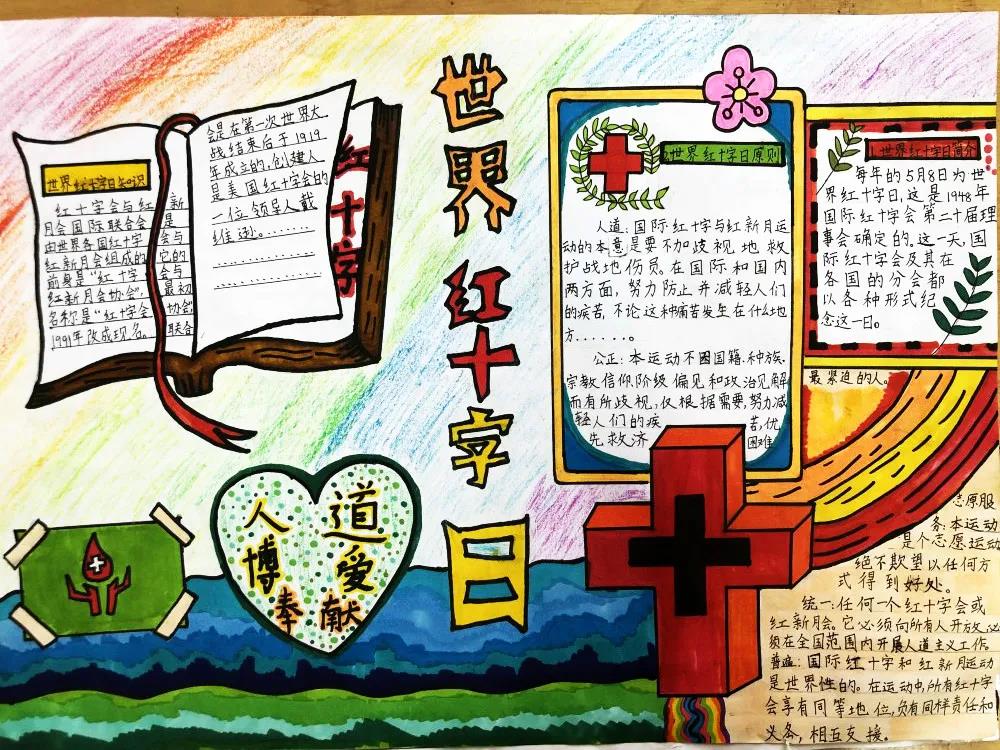 世界红十字日
世界红十字日知识
红十字会与红新
月会国际联合会是
由世界各国红十字会与
红新月会组成的它的
前身是“红十字会与
红新月会协会”最初
名称是“红十字会协会”
1991年改成现名。联合
会是在第一次世界大
战结束后于1919
年成立的,创建人
是美国红十字会的
一位领导人戴
维逊。........
红十字
人道
博爱
奉献
2世界红十字日原则
人道:国际红十字与红新月运
动的本意是要不加歧视地救
护战地伤员。在国际和国内
两方面,努力防止并减轻人们
的疾苦,不论这种痛苦发生在什么地
方......。
公正:本运动不因国籍.种族.
宗教信仰.阶级偏见和政治见解
而有所歧视,仅根据需要,努力减
轻人们的疾苦,优
先救济困难
最紧迫的人。
1.世界红十字日简介
每年的5月8日为世
界红十字日,这是1948年
国际红十字会第二十届理
事会确定的。这一天,国
际红十字会及其在
各国的分会都
以各种形式纪
念这一日。
志愿服
务:本运动
是个志愿运动
绝不欺望以任何方
式得到好处。
统一:任何一个红十字会或
红新月会。它必须向所有人开放,必
须在全国范围内开展人道主义工作
普遍:国际红十字和红新月运动
是世界性的。在运动中,所有红十字
会享有同等地位,负有同样责任和
义务,相互支援。